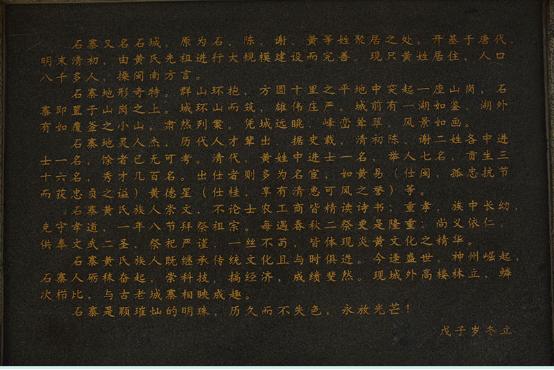 石寨又名石城，原为石、陈、谢、黄等姓聚居之处。开基于唐代，
明末清初，由黄氏先祖进行大规模建设而完善。现只黄姓居住，人口
八千多人，操闽南方言。
石寨地形奇特。群山环抱，方圆十里之平地中突起一座山岗，石
寨即置于山岗之上。城环山而筑，雄伟庄严。城前有一湖如鉴，湖外
有如覆釜之小山，肃然列案。凭城远眺，峰峦耸翠，风景如画。
石寨地灵人杰，历代人才辈出。据史载，清初陈、谢二姓各中进
士一名，馀者已无可考。清代，黄姓中进士一名，举人七名，贡生三
十六名，秀才几百名。出仕者则多为名宦，如黄易（仕闽，孤忠抗节
而获忠贞之谥）黄德星（仕桂，享有清惠可风之誉）等。
石寨黄氏族人崇文，不论士农工商皆精读诗书；重孝，族中长幼，
克守孝道，一年八节拜祭祖宗。每遇春秋二祭更是隆重；尚义依仁，
供奉文武二圣，祭祀严谨，一丝不苟，皆体现炎黄文化之精华。
石寨黄氏族人既继承传统文化且与时俱进。今逢盛世，神州崛起，
石寨人砺秣奋起，崇科技，搞经济，成绩斐然。现城外高楼林立，鳞
次栉比，与古老城寨相映成趣。
石寨是颗璀灿的明珠，历久而不失色，永放光芒！
戊子岁冬立